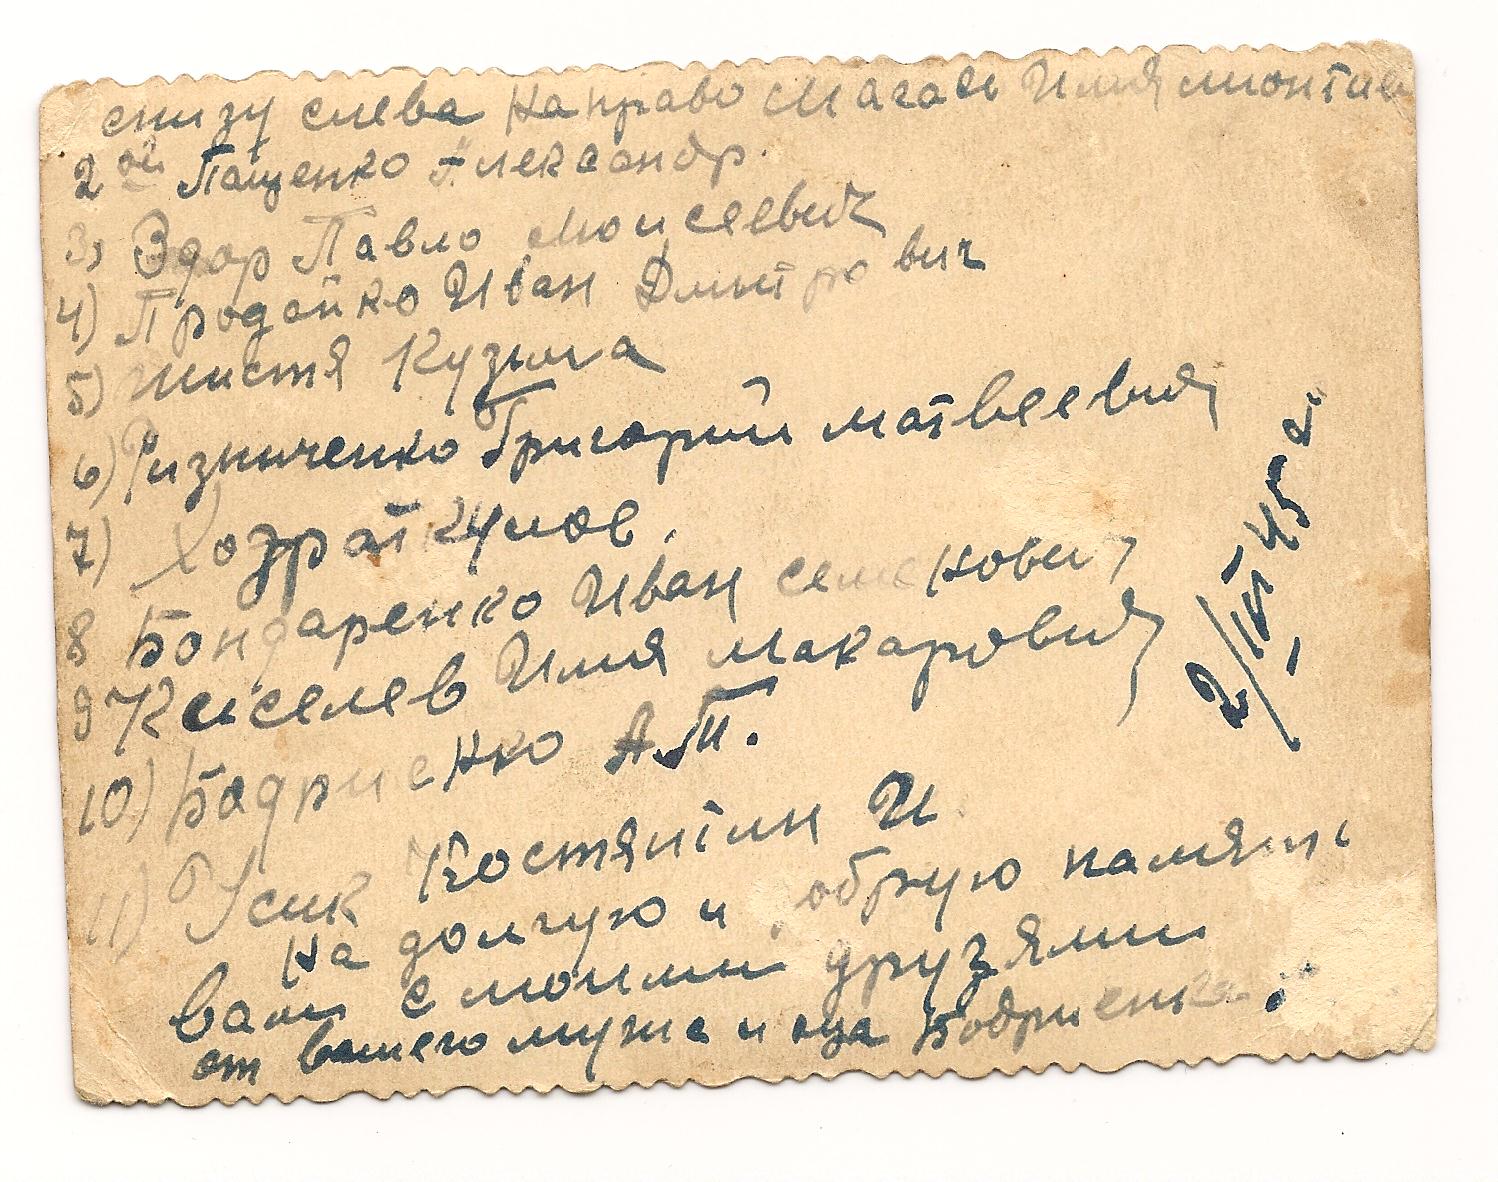 снизу слева направо Магась Илия
2ой Пащенко Александр.
3) Здор Павло Моисеевич
4) Продайко Иван Дмитрович
5) Шистя Кузьма
6) Ризниченко Григорий Матвеевич
7) Хозраткулов.
8 Бондаренко Иван Семенович
9 Киселев Илия Макарович
10) Бадриенко А.Т.
11) Усик Костянтин И
На долгую и добрую память
вам с моими друзями
от вашего мужа и оца Бодриенка
2/III 45 г.